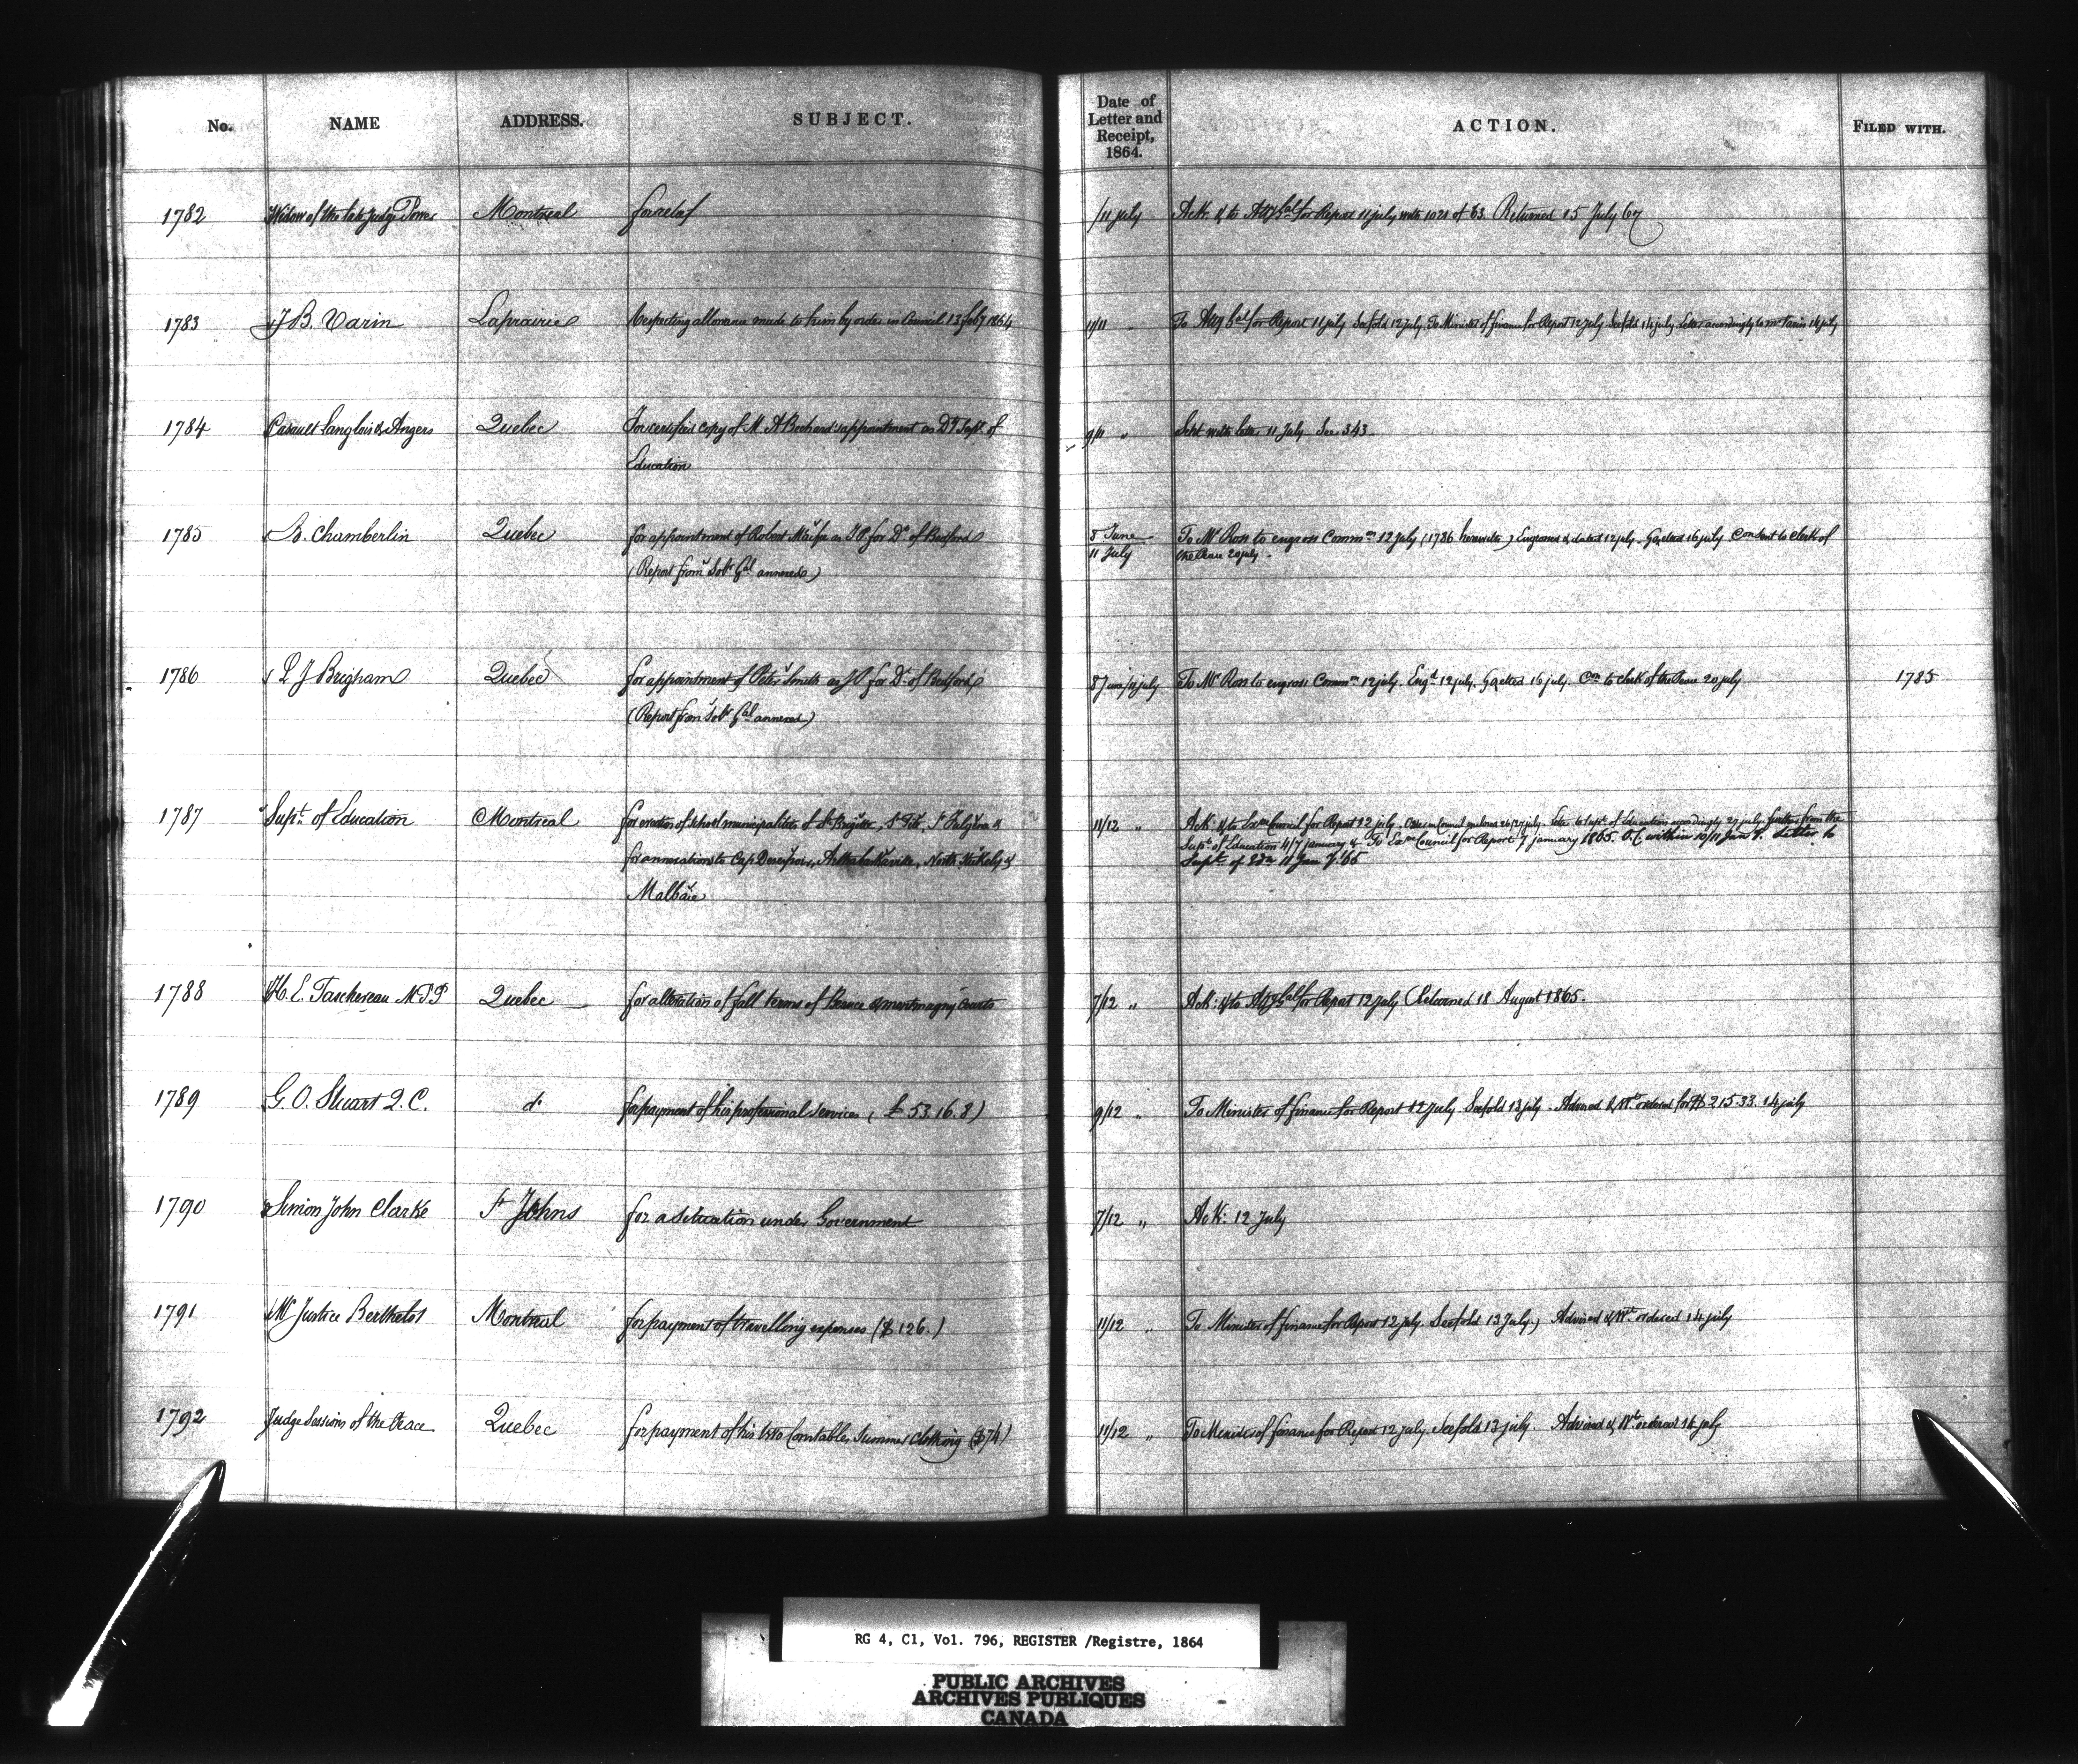 No. NAME ADDRESS. SUBJECT. Date of Letter and Receipt, 1864. ACTION. FILED WITH.
1782 Widow of the late Judge Power Montreal for relief /11 July Ack: & to Atty Gal for Report 11 july with 1021 of 63. Returned 15 July 67
1783 J B. Varin Laprairie Respecting allowance made to him by order in Council 13 feby 1864 11/11 " To Atty Gal for Report 11 july See fold 12 july. To Minister of finance for Report 12 july See fold 14 july. Letter accordingly to Mr Varin 14 july
1784 Casault Langlois & Angers Quebec For certified copy of M. A Bechard's appointment as Dy Supt of
Education 9/11 " Sent with letter 11 July See 343.
1785 B. Chamberlin Quebec for appointment of Robert as J P. for Dt of Bedford
(Report from Solr Gal annexed) 8 June
11 July To Mr Ross to engross Commn 12 july (1786 herewith) Engrossed & dated 12 july. Gazetted 16 july Con sent to clerk of
the Peace 20 july.
1786 P J Brigham Quebec for appointment of Peter Smith as J P for Dt of Bedford
(Report from Solr Gal annexed) 8 June/11 july To Mr Ross to engross Commn 12 july. Engd 12 july. Gazetted 16 july. Con to clerk of the Peace 20 july 1785
1787 Supt. of Education Montreal for erection of School municipalities of St Brigitte,
for annexations to Cap Desespoir, Arthabaskaville, North Stukely &
Malbaie 11/12 " Ack: & to Exve Council for Report 22 july. Order in Council 26/27 july. Letter to Supt. of Education accordingly 27 july. further from the
Supt. of Education 4/7 january & To Exve Council for Report 7 january 1865. O.C. within 10/11 Jany. Letter to
Supt. of Edn 11 Jany '65
1788 H. E. Taschereau M.P.P Quebec for alteration of fall terms of Beauce & montmagny Courts 7/12 " Ack: & to Atty Gal for Report 12 july (Returned 18 August 1865.
1789 G. O. Stuart Q.C. do for payment of his professional services (£ 53.16.8) 9/12 " To Minister of finance for Report 12 July See fold 13 july. Advised & Wt ordered for $ 215.33. 14 july
1790 Simon John Clarke St Johns for a situation under Government 7/12 " Ack: 12 July
1791 Mr Justice Berthelot Montreal for payment of travelling expenses ($ 126.) 11/12 " To Minister of finance for Report 12 july. See fold 13 July) Advised & Wt ordered 14 july
1792 Judge Sessions of the Peace Quebec for payment of his two Constables Summer clothing ($74) 11/12 " To Minister of finance for Report 12 july. See fold 13 july. Advised & Wt ordered 14 july
RG 4, C1, Vol. 796, REGISTER /Registre, 1864
PUBLIC ARCHIVES
ARCHIVES PUBLIQUES
CANADA